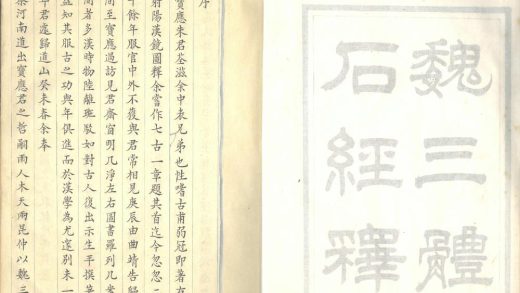 魏三體
石經釋
序
寶應朱君荃滋余中表兄弟也性嗜古甫弱冠即著
射陽漢鏡圖釋余嘗作七古一章題其首迄今忽忽二
十餘年服官中外不復與君常相見庚辰由曲靖告歸
間至寶應過訪見君齋窗明几淨左右圖書羅列几案
間者多漢時物陸離班駁如對古人復出示生平撰
益知其服古之功與年俱進而於漢學為尤邃別未一
年君遽歸道山癸未春余奉
臬河南道出寶應君之哲嗣雨人木天兩昆仲以魏三